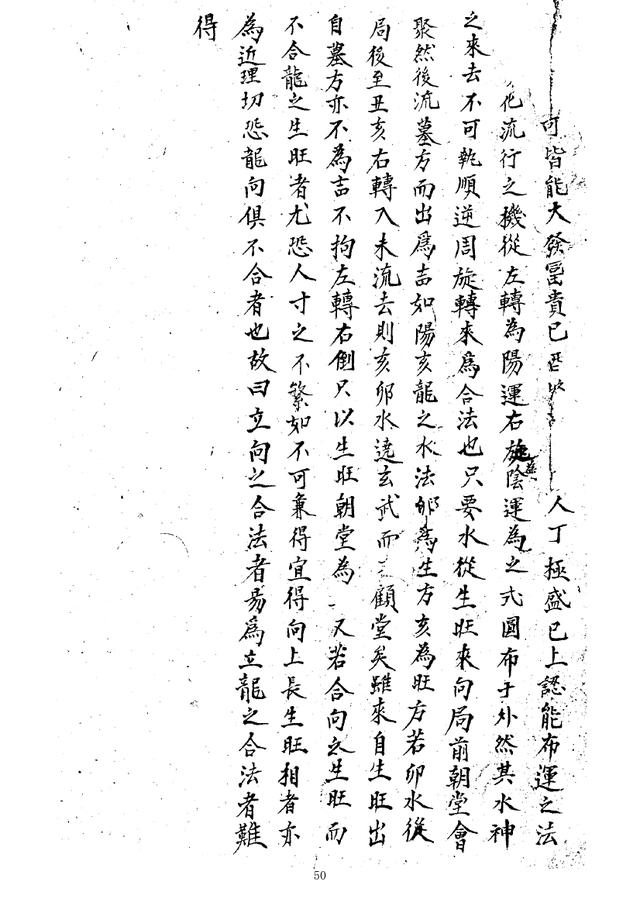 可皆能大發冨貴已酉 人丁極盛已上認能布運之法
化流行之機從左轉為陽運右旋陰運為之式圓布于外然其水神
之來去不可執順逆周旋轉來爲合法也只要水從生旺來向局前朝堂會
聚然後流墓方而出爲吉如陽亥龍之水法卯爲生方亥為旺方若卯水從
局後至丑亥右轉入未流去則亥卯水遶玄武而 顧堂矣雖來自生旺出
自墓方亦不為吉不拘左轉右倒只以生旺朝堂為 又若合向之生旺而
不合龍之生旺者尤恐人寸之不繁如不可兼得宜得向上長生旺相者亦
為近理切恐龍向俱不合者也故曰立向之合法者易爲立龍之合法者難
得
50